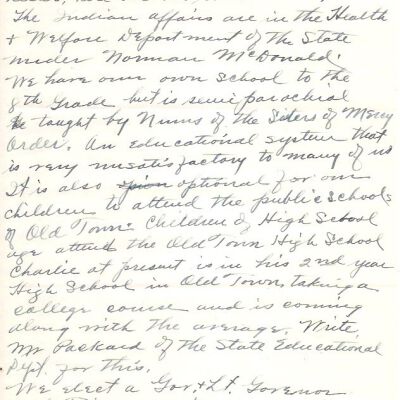 The Indian affairs are in the Health
+ Welfare Department of The State
under Norman McDonald.
We have our own School to the
8th Grade but is semi parochial
taught by Nuns of the Sisters of Mercy
Order. An Educational system that
is very unsatisfactory to many of us
It is also optional for our
children to attend the public schools
of Old Town. Children of High School
age attend the Old Town High School
Charlie at present is in his 2nd year
High School in Old Town, taking a
college course and is coming
along with the average. Write
Mr Packard of the State Educational
Dept. for this.
We elect a Gov. & Lt. Govenor